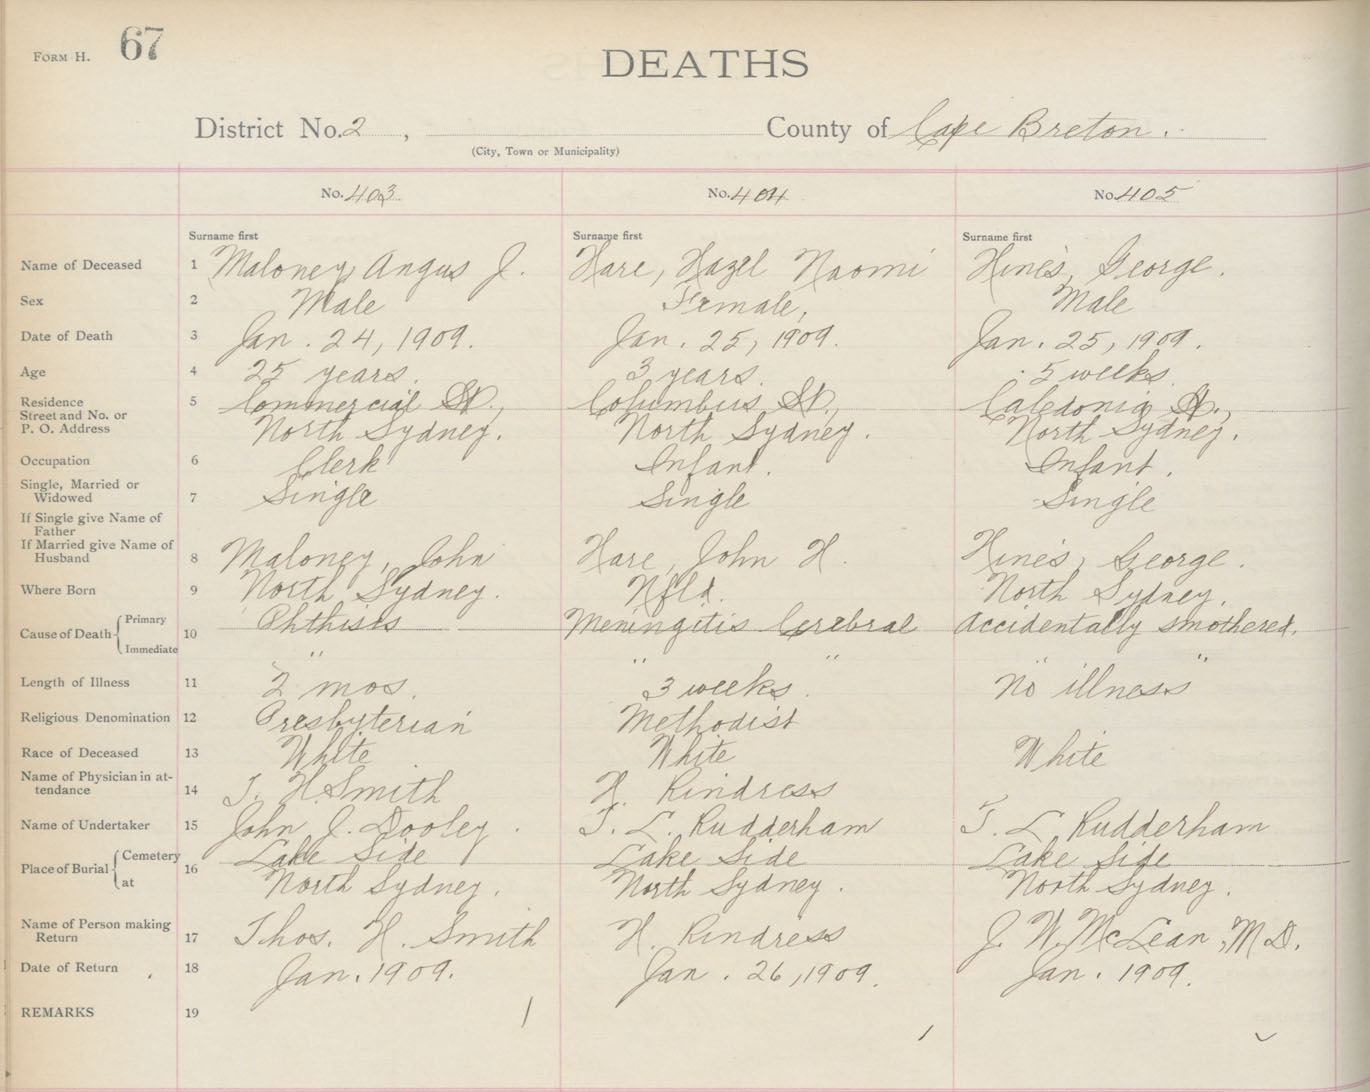 FORM H. 67
DEATHS
District No. 2 , County of Cape Breton.
(City, Town or Municipality)
No. 403 No. 404 No. 405
Surname first Surname first Surname first
Name of Deceased 1 Maloney, Angus J. Hare, Hazel Naomi Hines, George.
Sex 2 Male Female, Male
Date of Death 3 Jan. 24, 1909. Jan. 25, 1909. Jan. 25, 1909.
Age 4 25 years. 3 years. 5 weeks.
Residence 5 Commercial St., Columbus St., Caledonia St.,
Street and No. or
P. O. Address North Sydney. North Sydney. North Sydney.
Occupation 6 Clerk Infant. Infant.
Single, Married or
Widowed 7 Single Single Single
If Single give Name of
Father
If Married give Name of
Husband 8 Maloney, John Hare, John H. Hines, George.
Where Born 9 North Sydney. Nfld. North Sydney.
Cause of Death Primary 10 Phthisis Meningitis Cerebral Accidentally smothered.
Immediate " " " " "
Length of Illness 11 2 mos. 3 weeks. No illness
Religious Denomination 12 Presbyterian Methodist
Race of Deceased 13 White White White
Name of Physician in at-
tendance 14 T. H. Smith H. Rindress
Name of Undertaker 15 John J. Dooley. T. L. Rudderham T. L. Rudderham
Place of Burial Cemetery 16 Lake Side Lake Side Lake Side
at North Sydney. North Sydney. North Sydney.
Name of Person making
Return 17 Thos. H. Smith H. Rindress J. W. McLean, M.D.
Date of Return 18 Jan. 1909. Jan. 26, 1909. Jan. 1909.
REMARKS 19